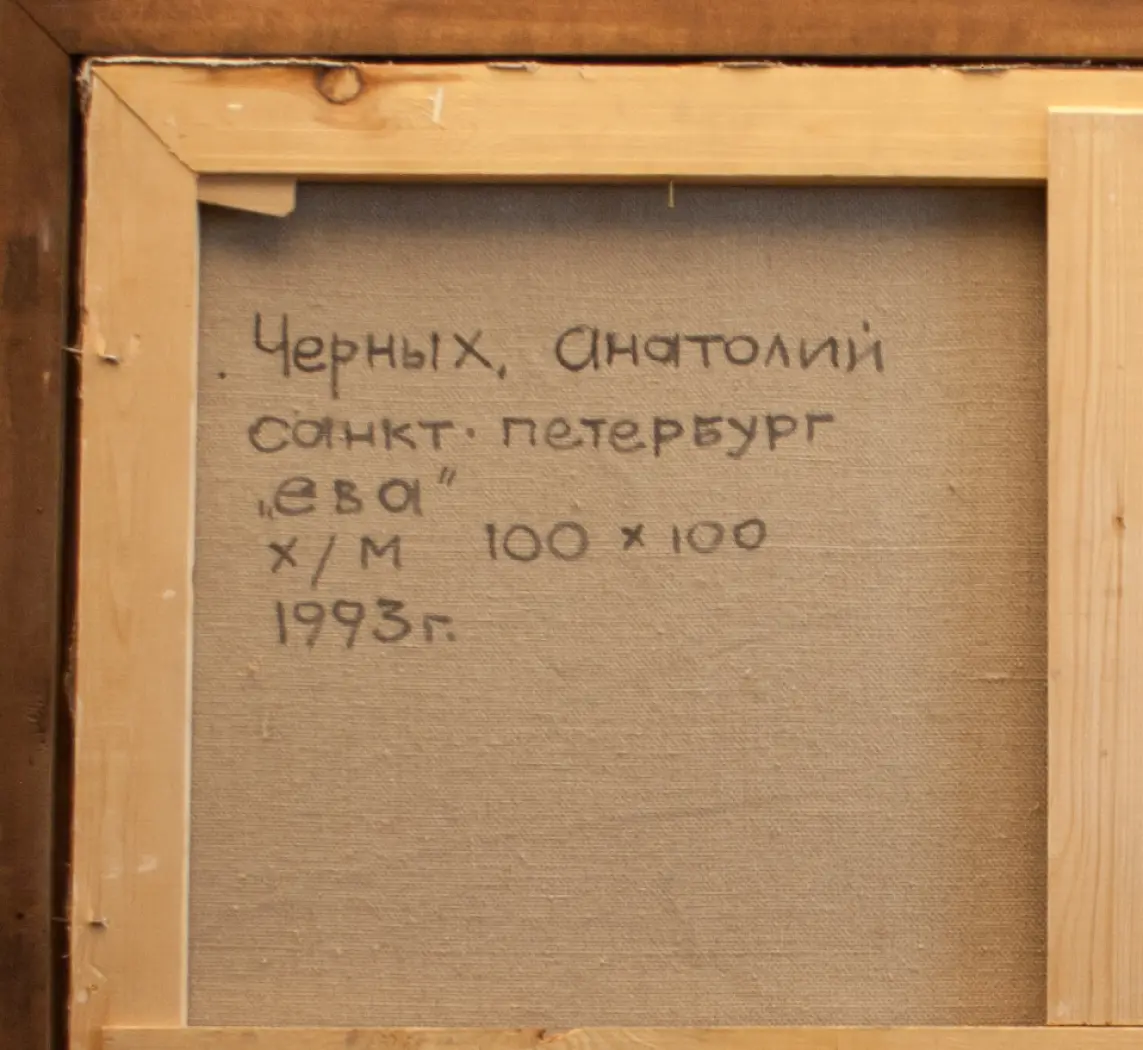 Черных, Анатолий
санкт-петербург
„ева"
х/м 100 х 100
1993г.